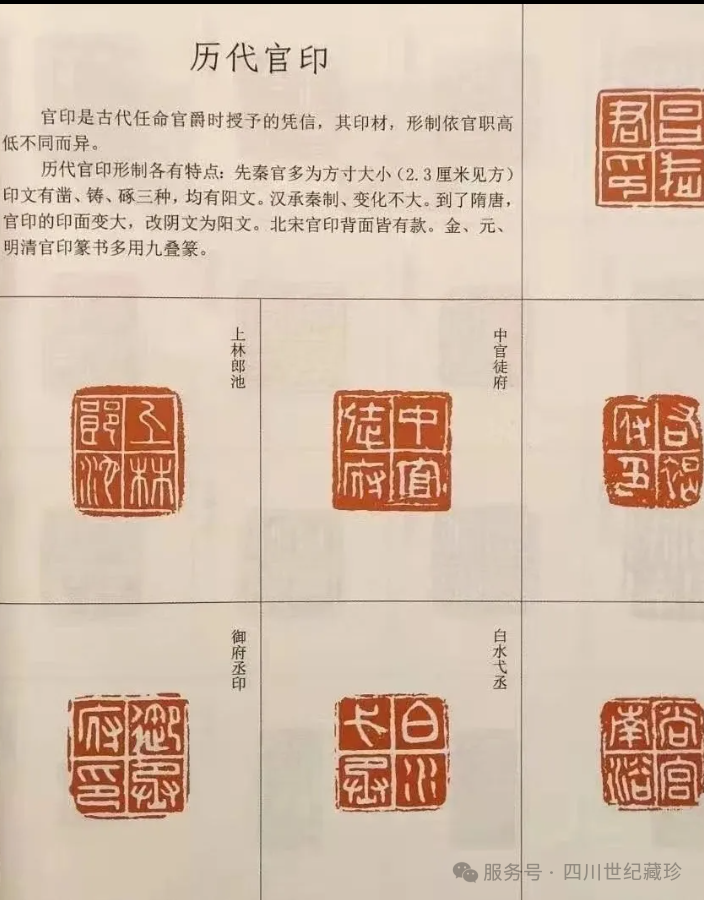 历代官印
官印是古代任命官爵时授予的凭信，其印材，形制依官职高
低不同而异。
历代官印形制各有特点：先秦官多为方寸大小（2.3厘米见方）
印文有凿、铸、琢三种，均有阳文。汉承秦制、变化不大。到了隋唐，
官印的印面变大，改阴文为阳文。北宋官印背面皆有款。金、元、
明清官印篆书多用九叠篆。
上林郎池
中官徒府
御府丞印
白水弋丞
服务号·四川世纪藏珍